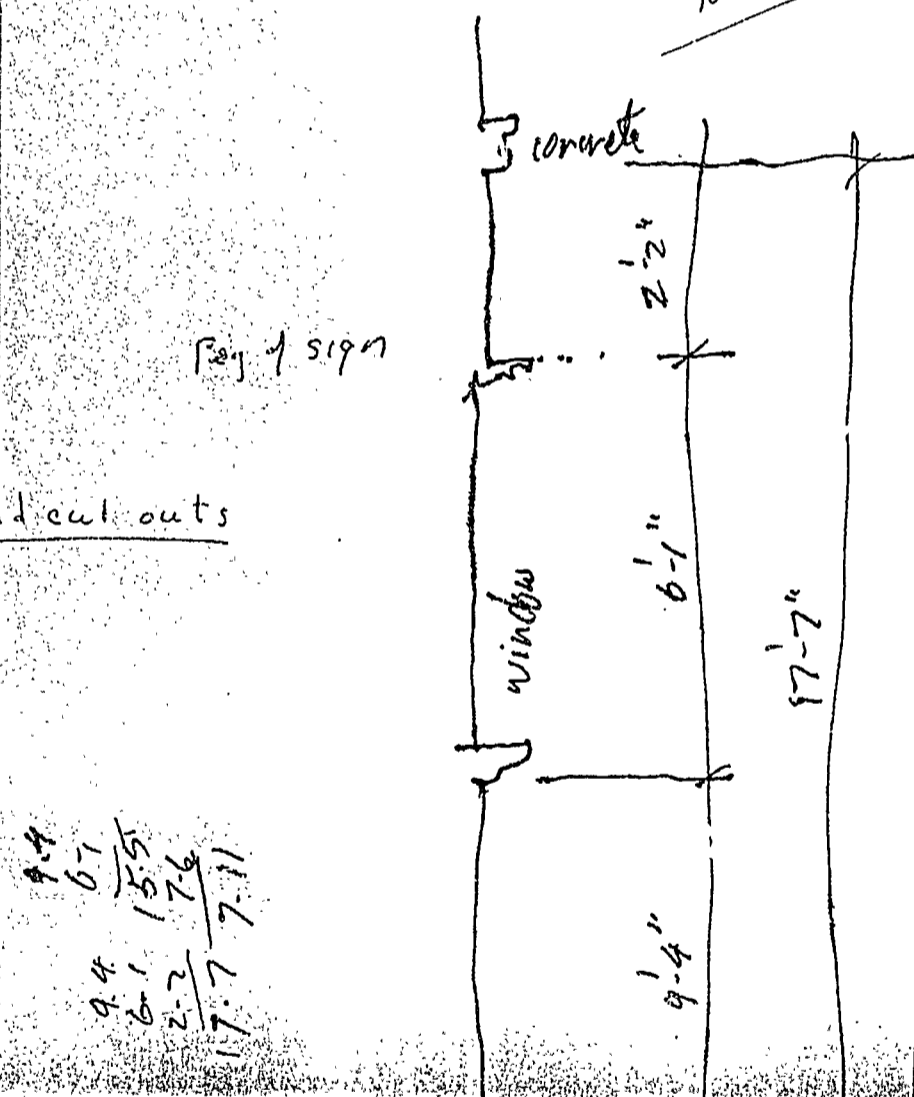 concrete
2'2"
of sign
cut outs
6'-1"
window
17'-7"
9'-4"
9.4
6-1
15.5
7.6
7.11
9.4
6-1
2-2
17.7